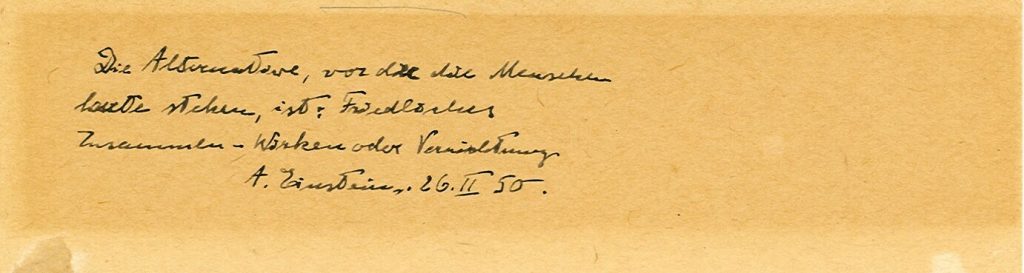 Die Alternative, vor die die Menschen
heute stehen, ist: Friedliches
Zusammen-Wirken oder Vernichtung
A. Einstein. 26. II 50.